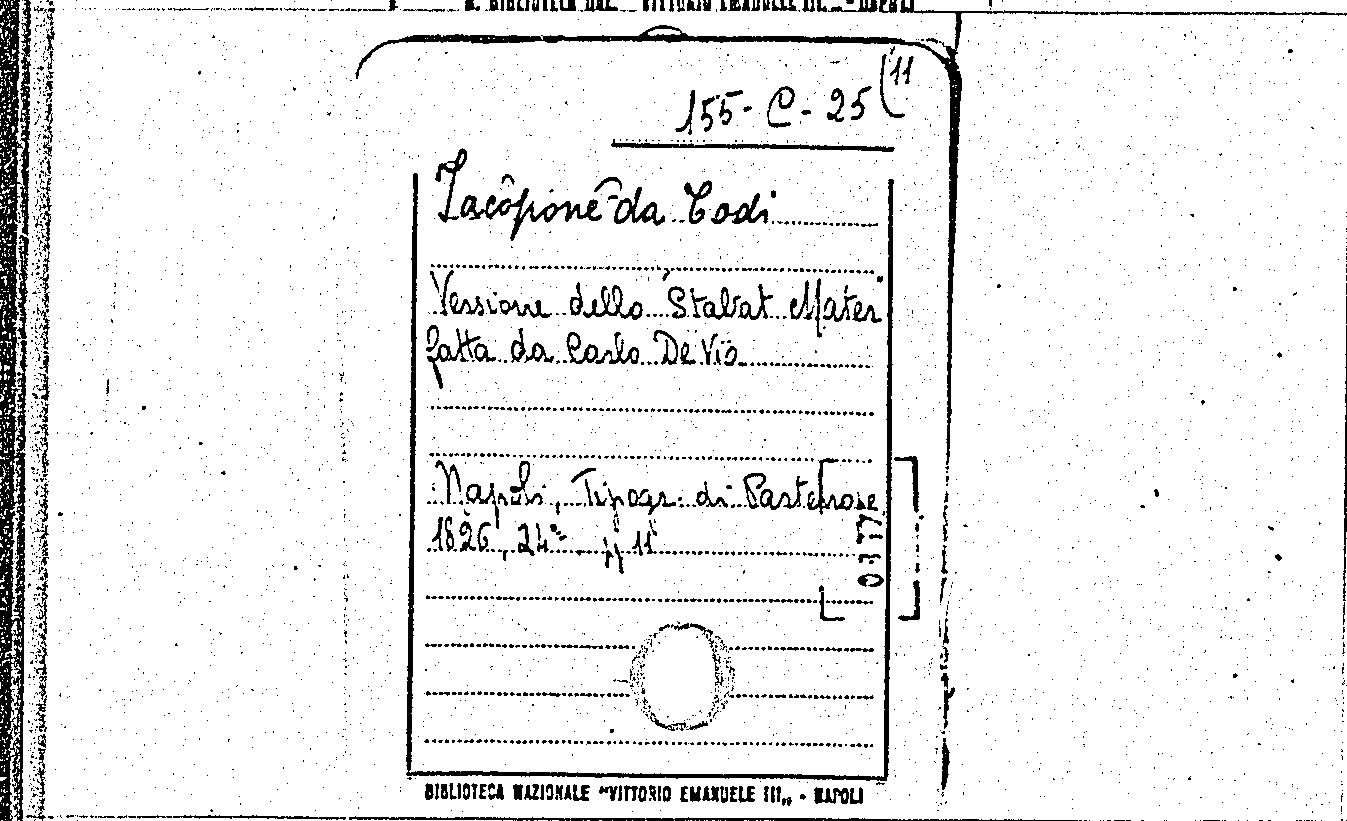 BIBLIOTECA NAZ. "VITTORIO EMANUELE III" - NAPOLI
155-C-25 (11
Jacopone da Todi
Versione dello "Stabat Mater"
fatta da Carlo De Vio
Napoli, Tipogr. di Partenope
1826, 24°- pp 11
0377
BIBLIOTECA NAZIONALE "VITTORIO EMANUELE III„ - NAPOLI